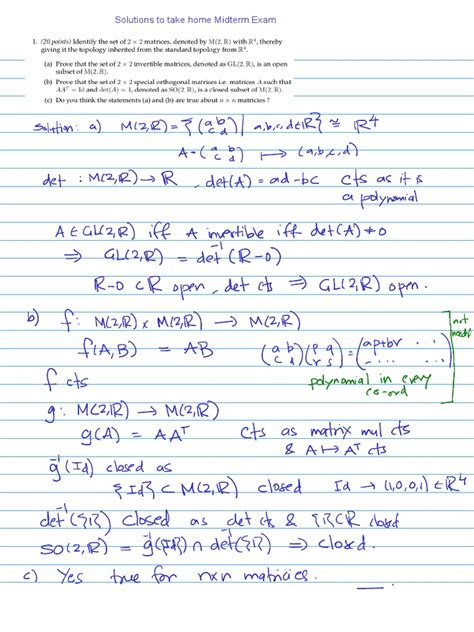 Solutions to take home Midterm Exam
1. (20 points) Identify the set of 2 × 2 matrices, denoted by M(2, R) with R⁴, thereby
giving it the topology inherited from the standard topology from R⁴.
(a) Prove that the set of 2 × 2 invertible matrices, denoted as GL(2, R), is an open
subset of M(2, R).
(b) Prove that the set of 2 × 2 special orthogonal matrices i.e. matrices A such that
AAᵀ = Id and det(A) = 1, denoted as SO(2, R), is a closed subset of M(2, R).
(c) Do you think the statements (a) and (b) are true about n × n matricies ?
Solution: a) M(2,R) = {(a b; c d) | a,b,c,d∈R} ≅ R⁴
A = (a b; c d) ⟼ (a,b,c,d)
det : M(2,R) → R , det(A) = ad-bc cts as it is
a polynomial
A ∈ GL(2,R) iff A invertible iff det(A) ≠ 0
⇒ GL(2,R) = det⁻¹(R-0)
R-0 ⊂ R open, det cts ⇒ GL(2,R) open.
b) f: M(2,R) × M(2,R) → M(2,R)
f(A,B) = AB (a b; c d)(p q; r s) = (ap+br ..; .... ...)
not
f cts polynomial in every
co-ord
g: M(2,R) → M(2,R)
g(A) = AAᵀ cts as matrix mul cts
& A ↦ Aᵀ cts
g⁻¹(Id) closed as
{Id} ⊂ M(2,R) closed Id → (1,0,0,1) ∈ R⁴
det⁻¹({1}) closed as det cts & {1} ⊂ R closed
SO(2,R) = g⁻¹({Id}) ∩ det⁻¹({1}) ⇒ closed.
c) Yes true for nxn matricies.